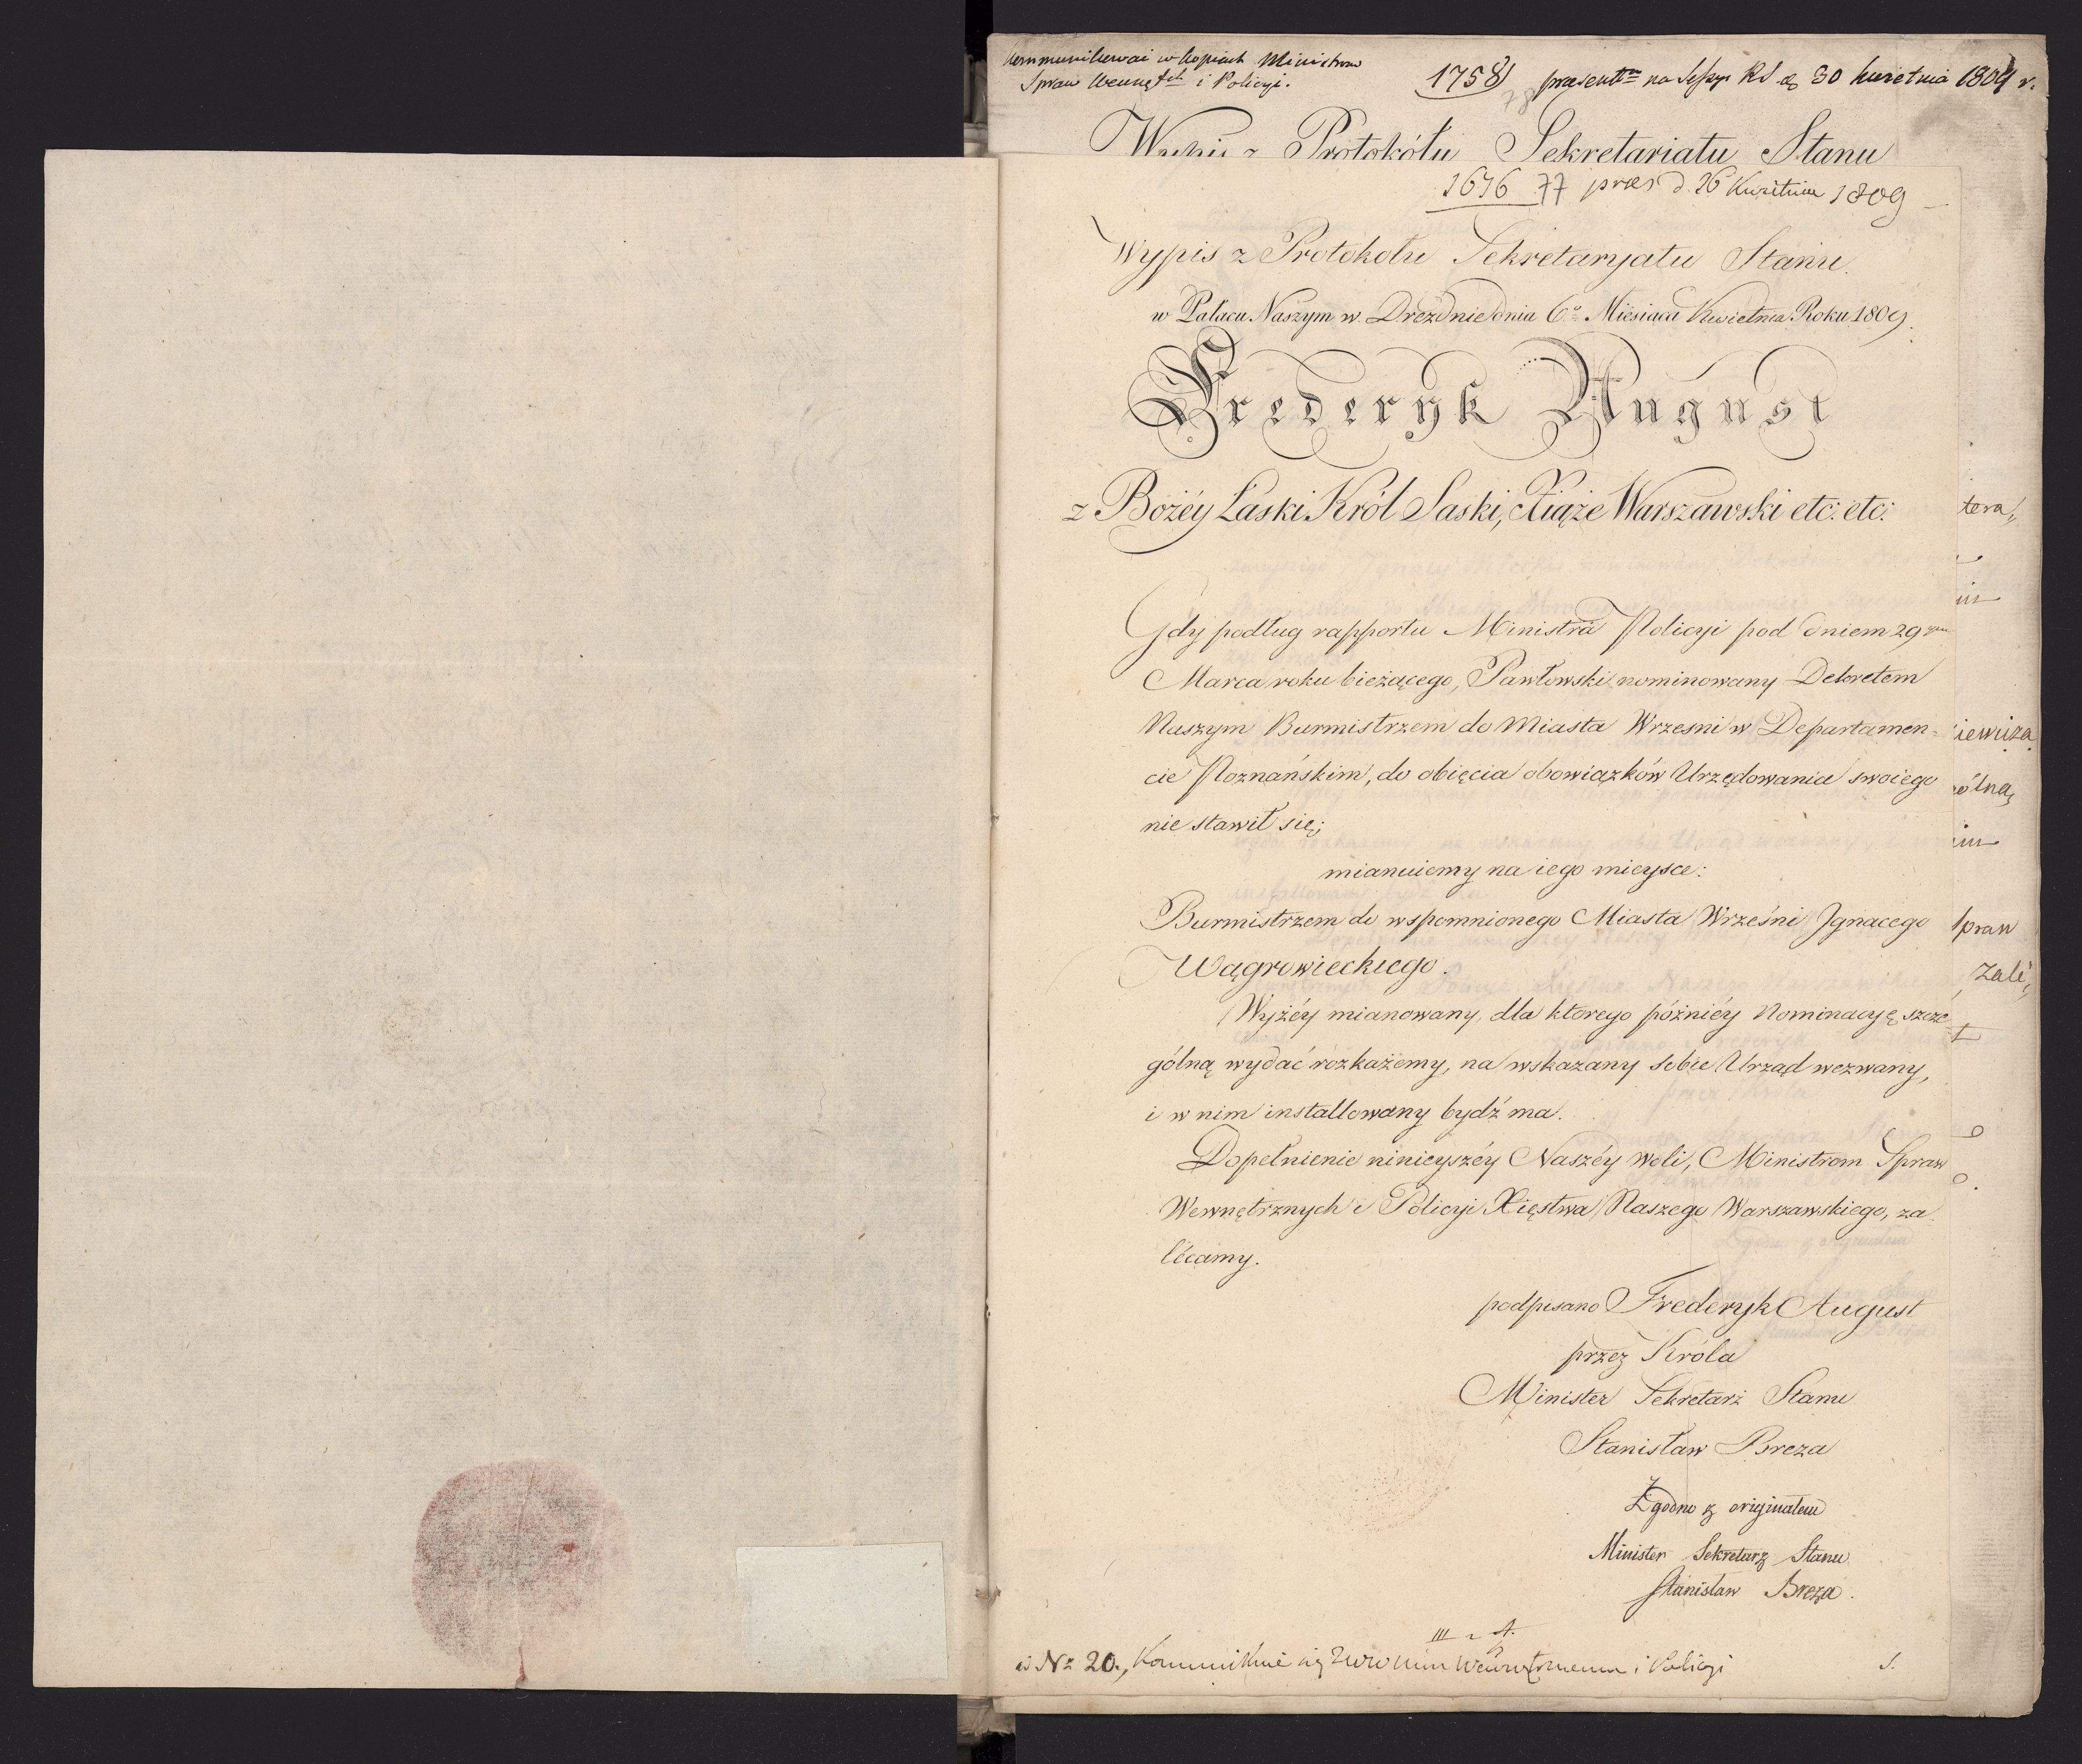 kommunikować w kopiach Ministrom
Spraw Wewnętch i Policyi.
1758 praesentm na Sessyi RS d. 30 kwietnia 1809 r.
78
Wypis z Protokółu Sekretariatu Stanu
1676 77 praes d. 26 Kwietnia 1809
Wypis z Protokołu Sekretaryatu Stanu.
w Pałacu Naszym w Dreźnie dnia 6o Miesiąca Kwietnia Roku 1809.
Frederyk August
z Bożéy Łaski Król Saski, Xiąże Warszawski etc: etc:
Gdy podług rapportu Ministra Policyi pod dniem 29
Marca roku bieżącego, Pawłowski nominowany Dekretem
Naszym Burmistrzem do Miasta Wrzesni w Departamen=
cie Poznańskim, do obięcia obowiązków Urzędowania swoiego
nie stawił się;
mianuiemy na iego mieysce:
Burmistrzem do wspomnionego Miasta Wrześni Jgnacego
Wągrowieckiego.
Wyżéy mianowany, dla ktorego późniéy Nominacyę szcze=
gólną wydać rozkażemy, na wskazany sobie Urząd wezwany,
i w nim installowany bydź ma.
Dopełnienie ninieyszéy Naszéy woli, Ministrom Spraw
Wewnętrznych i Policyi Xięstwa Naszego Warszawskiego, za
lécamy.
podpisano Frederyk August
przez Króla
Minister Sekretarz Stanu
Stanisław Breza
Zgodno z oryginałem
Minister Sekretarz Stanu
Stanisław Breza.
III
N= 20., i Policyi
tera,
iewicza
ólną
Spraw
zalé,